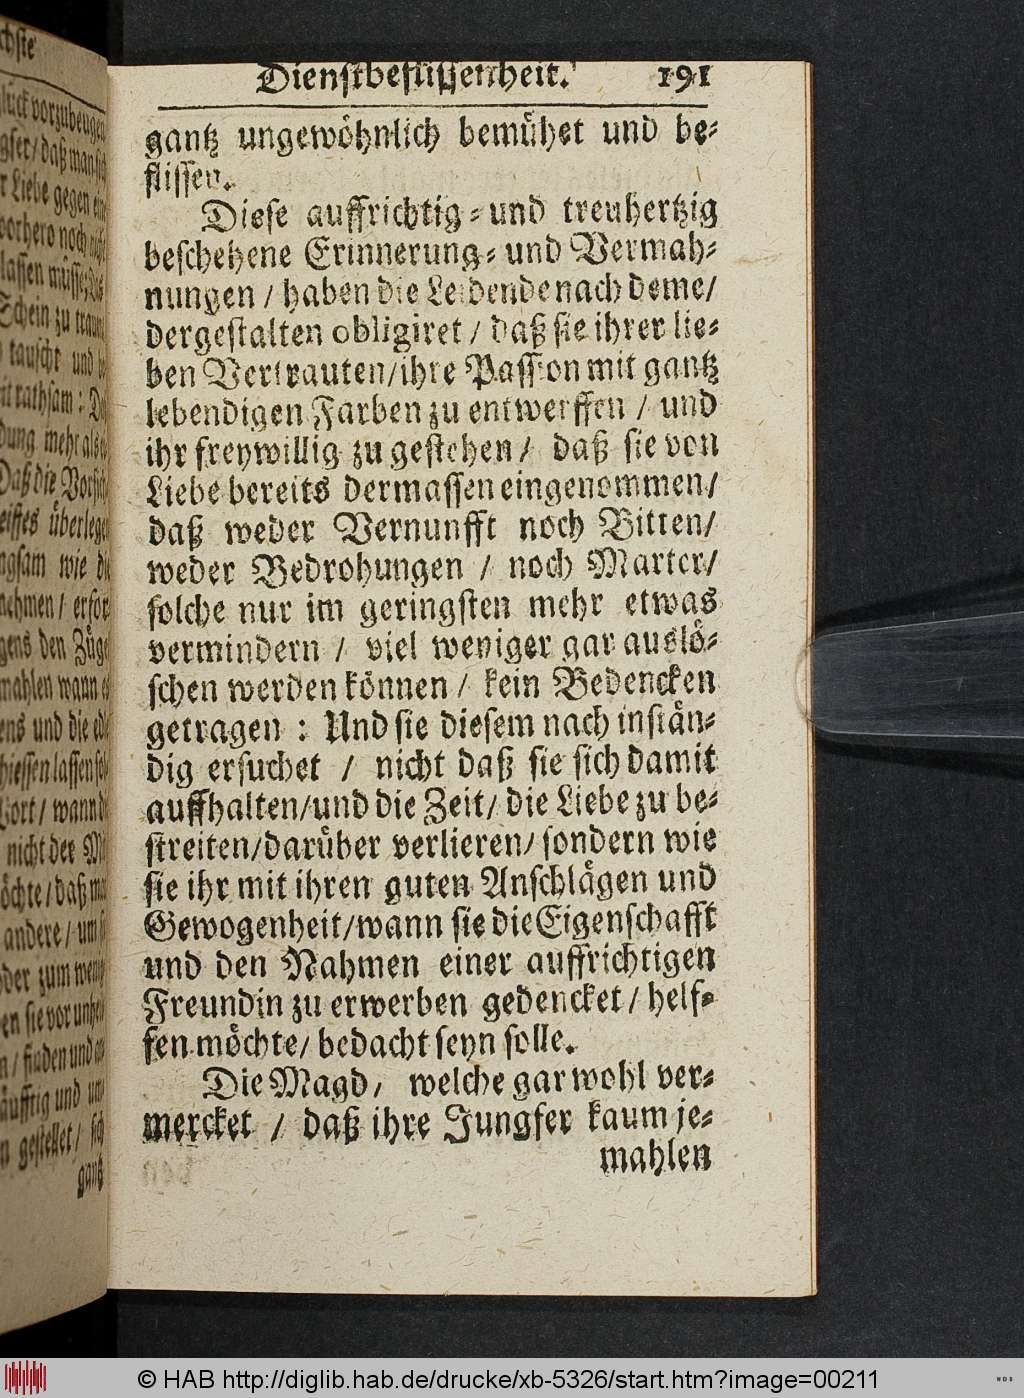 Dienstbeflissenheit. 191
gantz ungewöhnlich bemühet und be-
flissen.
Diese auffrichtig- und treuhertzig
beschehene Erinnerung- und Vermah-
nungen / haben die Leidende nach deme /
dergestalten obligiret / daß sie ihrer lie-
ben Vertrauten / ihre Passion mit gantz
lebendigen Farben zu entwerffen / und
ihr freywillig zu gestehen / daß sie von
Liebe bereits dermassen eingenommen /
daß weder Vernunfft noch Bitten /
weder Bedrohungen / noch Marter /
solche nur im geringsten mehr etwas
vermindern / viel weniger gar auslö-
schen werden können / kein Bedencken
getragen : Und sie diesem nach instän-
dig ersuchet / nicht daß sie sich damit
auffhalten / und die Zeit / die Liebe zu be-
streiten / darüber verlieren / sondern wie
sie ihr mit ihren guten Anschlägen und
Gewogenheit / wann sie die Eigenschafft
und den Nahmen einer auffrichtigen
Freundin zu erwerben gedencket / helf-
fen möchte / bedacht seyn solle.
Die Magd / welche gar wohl ver-
mercket / daß ihre Jungfer kaum je-
mahlen
© HAB http://diglib.hab.de/drucke/xb-5326/start.htm?image=00211